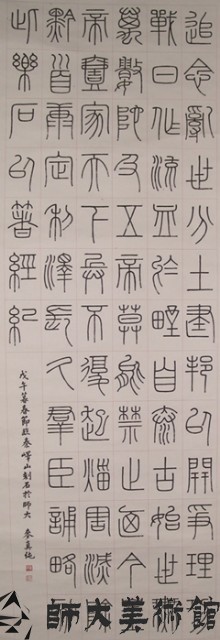 追念亂世分土建邦以開爭理
戰日作流血於野自泰古始世
萬數陀及五帝莫能禁止迺今
帝壹家天下兵不復起災害滅除
黔首康定利澤長久群臣誦略刻
此樂石以著經紀
戊午暮春節臨秦嶧山刻石於師大
師大美術館